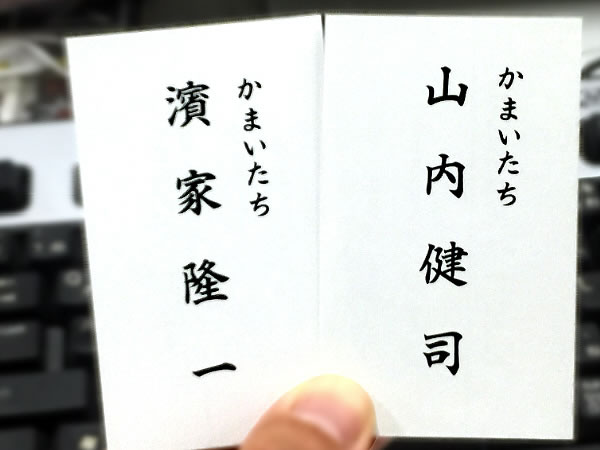 かまいたち
山内健司
かまいたち
濱家隆一